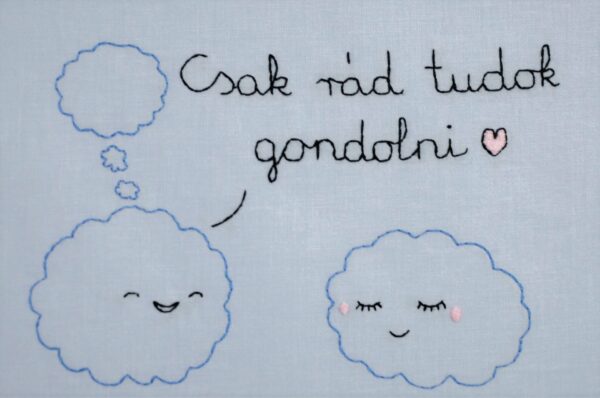 Csak rád tudok
gondolni